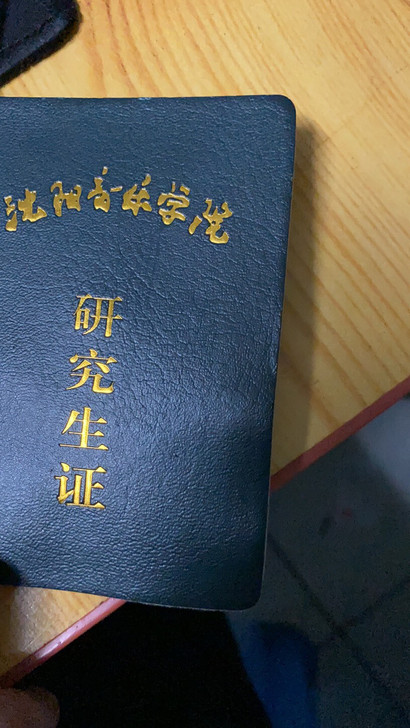 沈阳音乐学院
研究生证